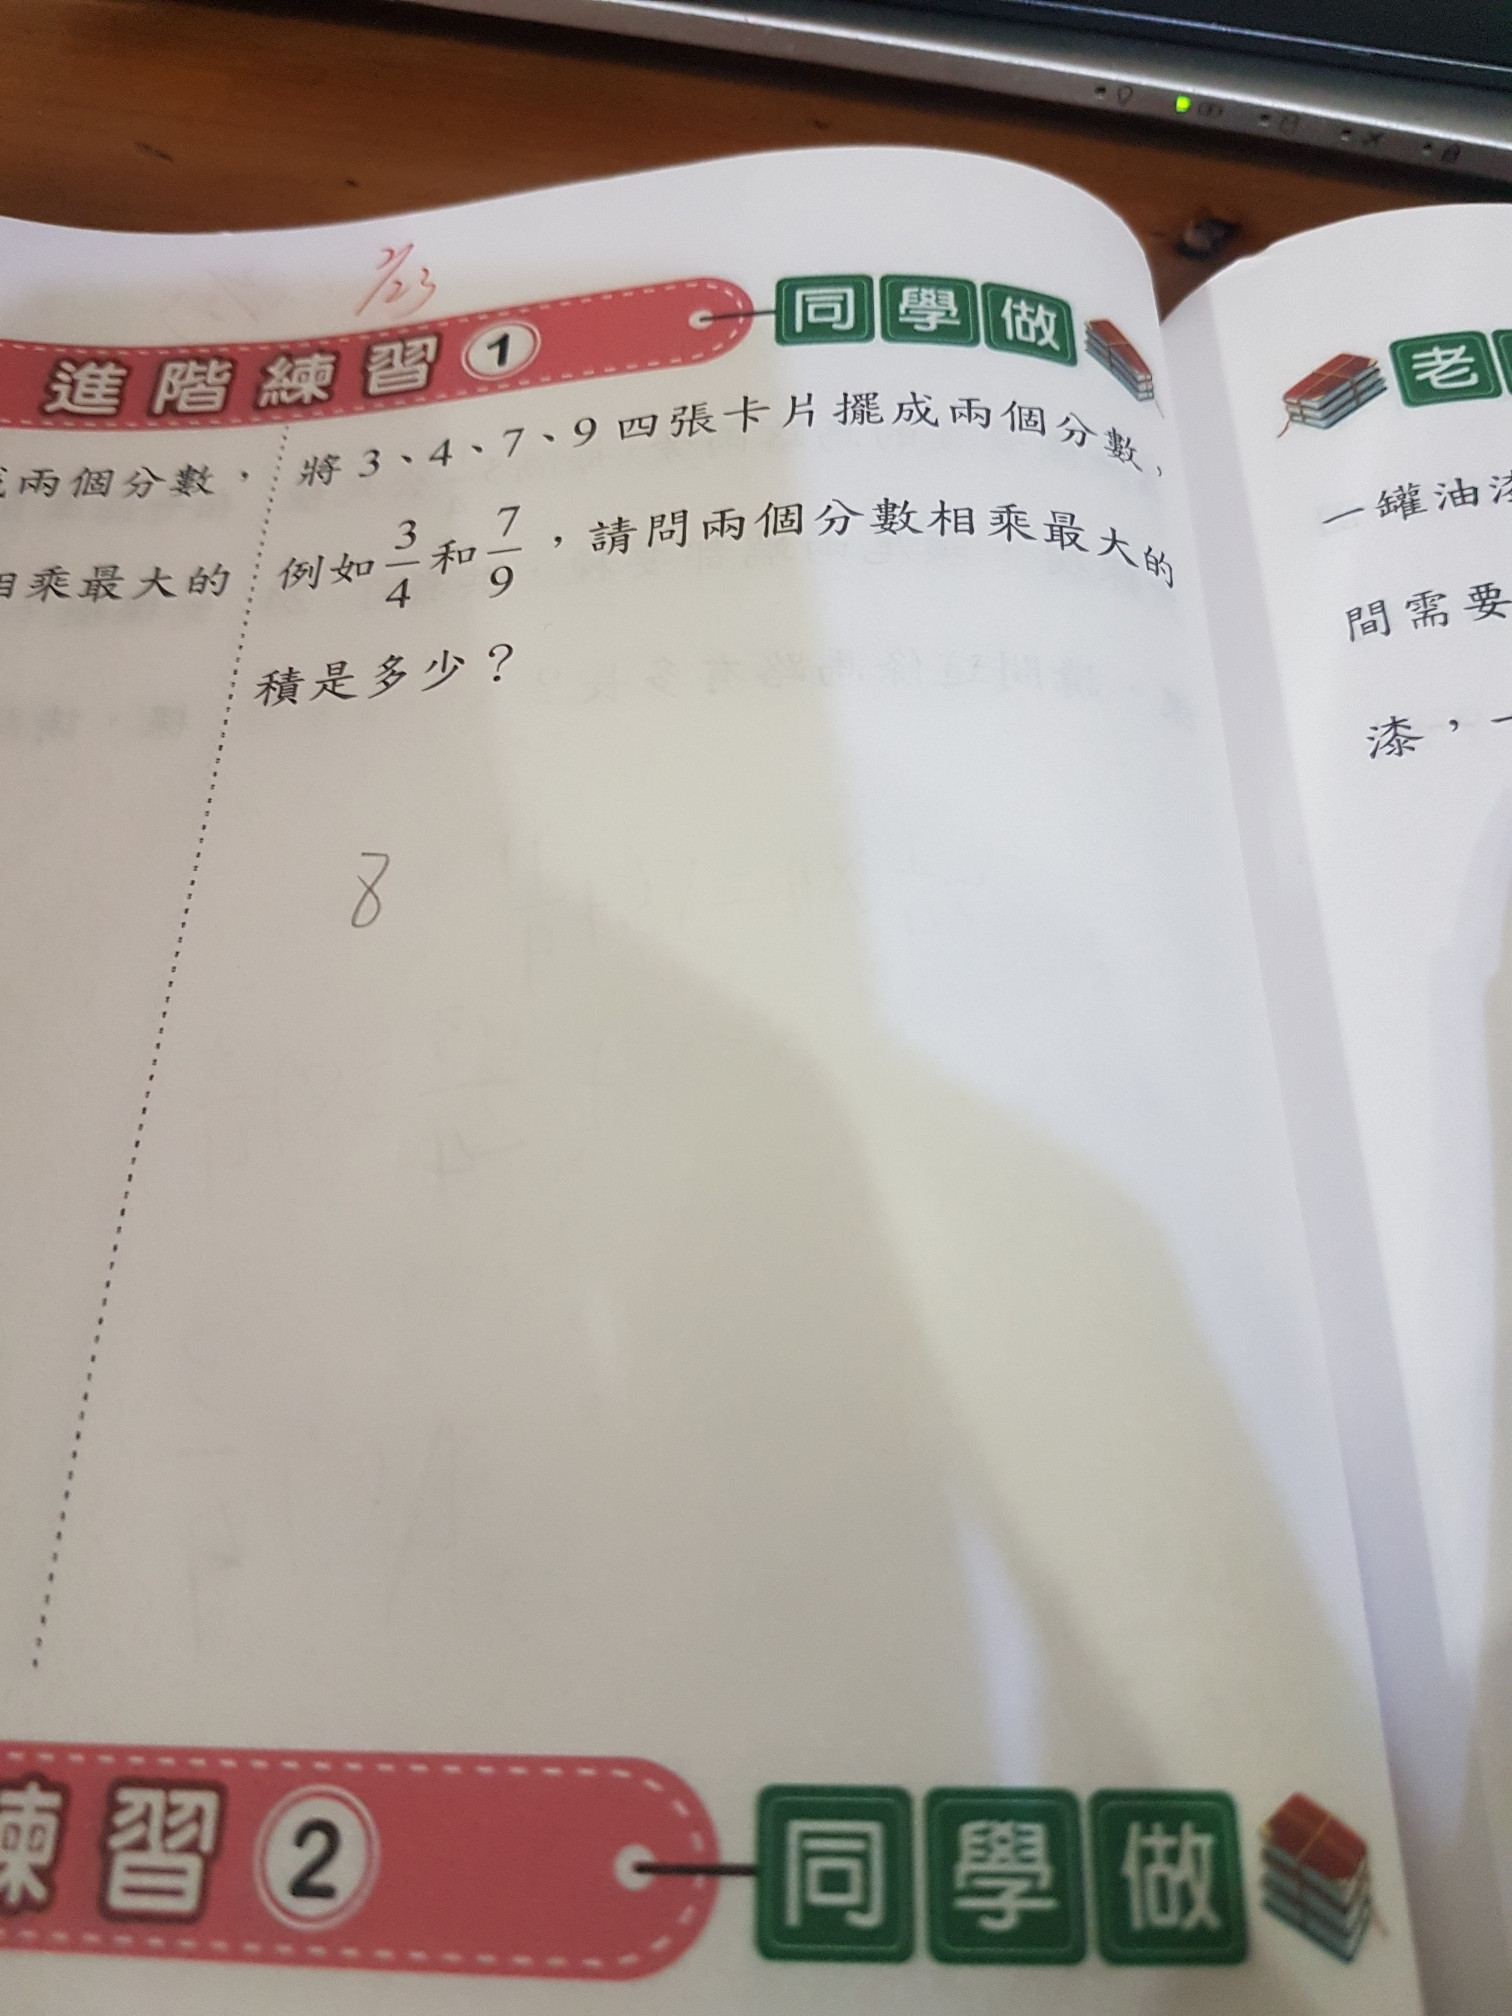 2/23
進階練習 1 同學做
兩個分數，
相乘最大的
將 3、4、7、9 四張卡片擺成兩個分數，
例如 3/4 和 7/9 ，請問兩個分數相乘最大的
積是多少？
8
練習 2 同學做
老
一罐油漆
間需要
漆，一